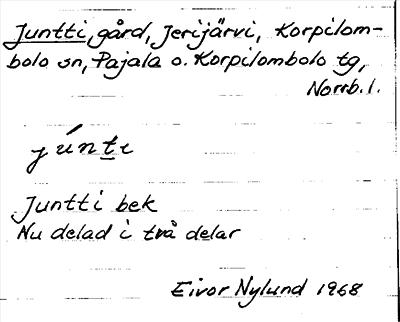 Juntti, gård, Jerijärvi, Korpilom-
bolo sn, Pajala o. Korpilombolo tg,
Norrb. l.
júnti
Juntti bek
Nu delad i två delar
Eivor Nylund 1968